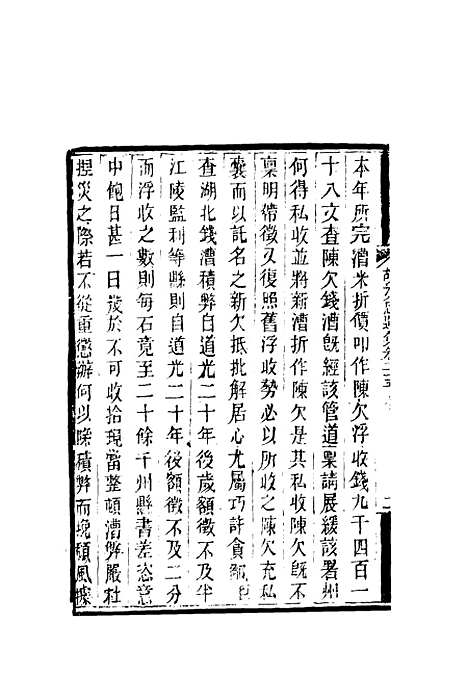 本年所完漕米折價叩作陳欠浮收錢九千四百一
十八文查陳欠錢漕旣經該管道稟請展緩該署州
何得私收並將新漕折作陳欠是其私收陳欠旣不
稟明帶徵又復照舊浮收勢必以所收之陳欠充私
囊而以託名之新欠抵批解居心尤屬巧詐貪
查湖北錢漕積弊自道光二十年後歲額徵不及半
江陵監利等縣則自道光二十年後額徵不及二分
而浮收之數則每石竟至二十餘千州縣書差恣意
中飽日甚一日幾於不可收拾現當整頓漕弊嚴杜
捏災之際若不從重懲辦何以除積弊而挽頹風據